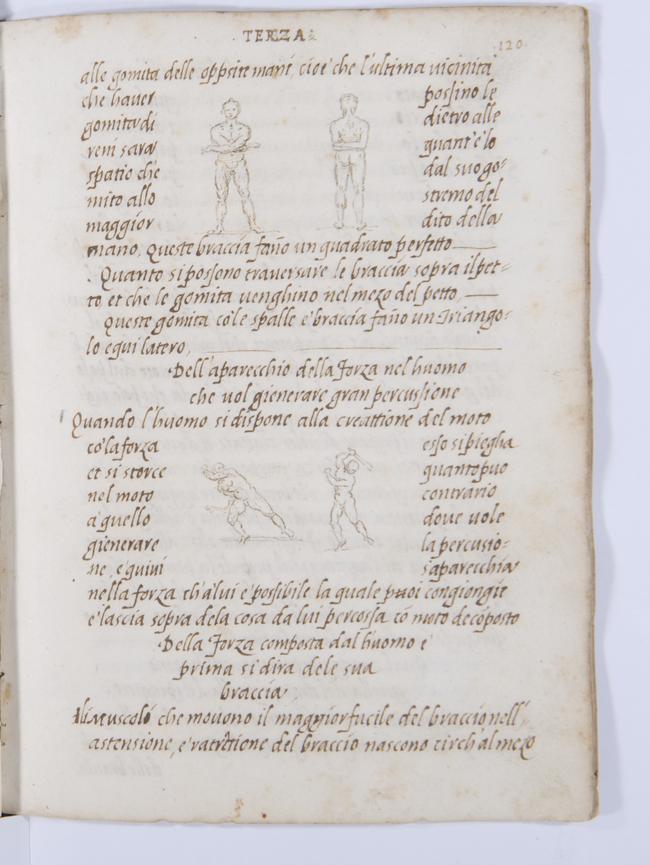 TERZA
120
alle gomita delle opposite mani, cioe che l'ultima vicinita
che haver possino le
gomita di dietro alle
reni sara quant'è lo
spatio che dal suo go-
mito allo stremo del
maggior dito della
mano, queste braccia fano un quadrato perfetto
Quanto si possono traversare le braccia sopra il pet-
to et che le gomita venghino nel mezo del petto,
Queste gomita co'le spalle e braccia fano un Triango-
lo equilatero,
Dell'aparecchio della forza nel huomo
che vol gienerare gran percussione
Quando l'huomo si dispone alla creattione del moto
co'la forza esso si piegha
et si storce quanto puo
nel moto contrario
a quello dove vole
gienerare la percusio-
ne, e quivi s'aparecchia
nella forza ch'a lui e possibile la quale poi congiongie
e lascia sopra dela cosa da lui percossa co moto decoposto
Della forza composta dal huomo e
prima si dira dele sua
braccia
muscoli che movono il maggior fucile del braccio nell'
astensione, e ratrattione del braccio nascono circh'al mezo